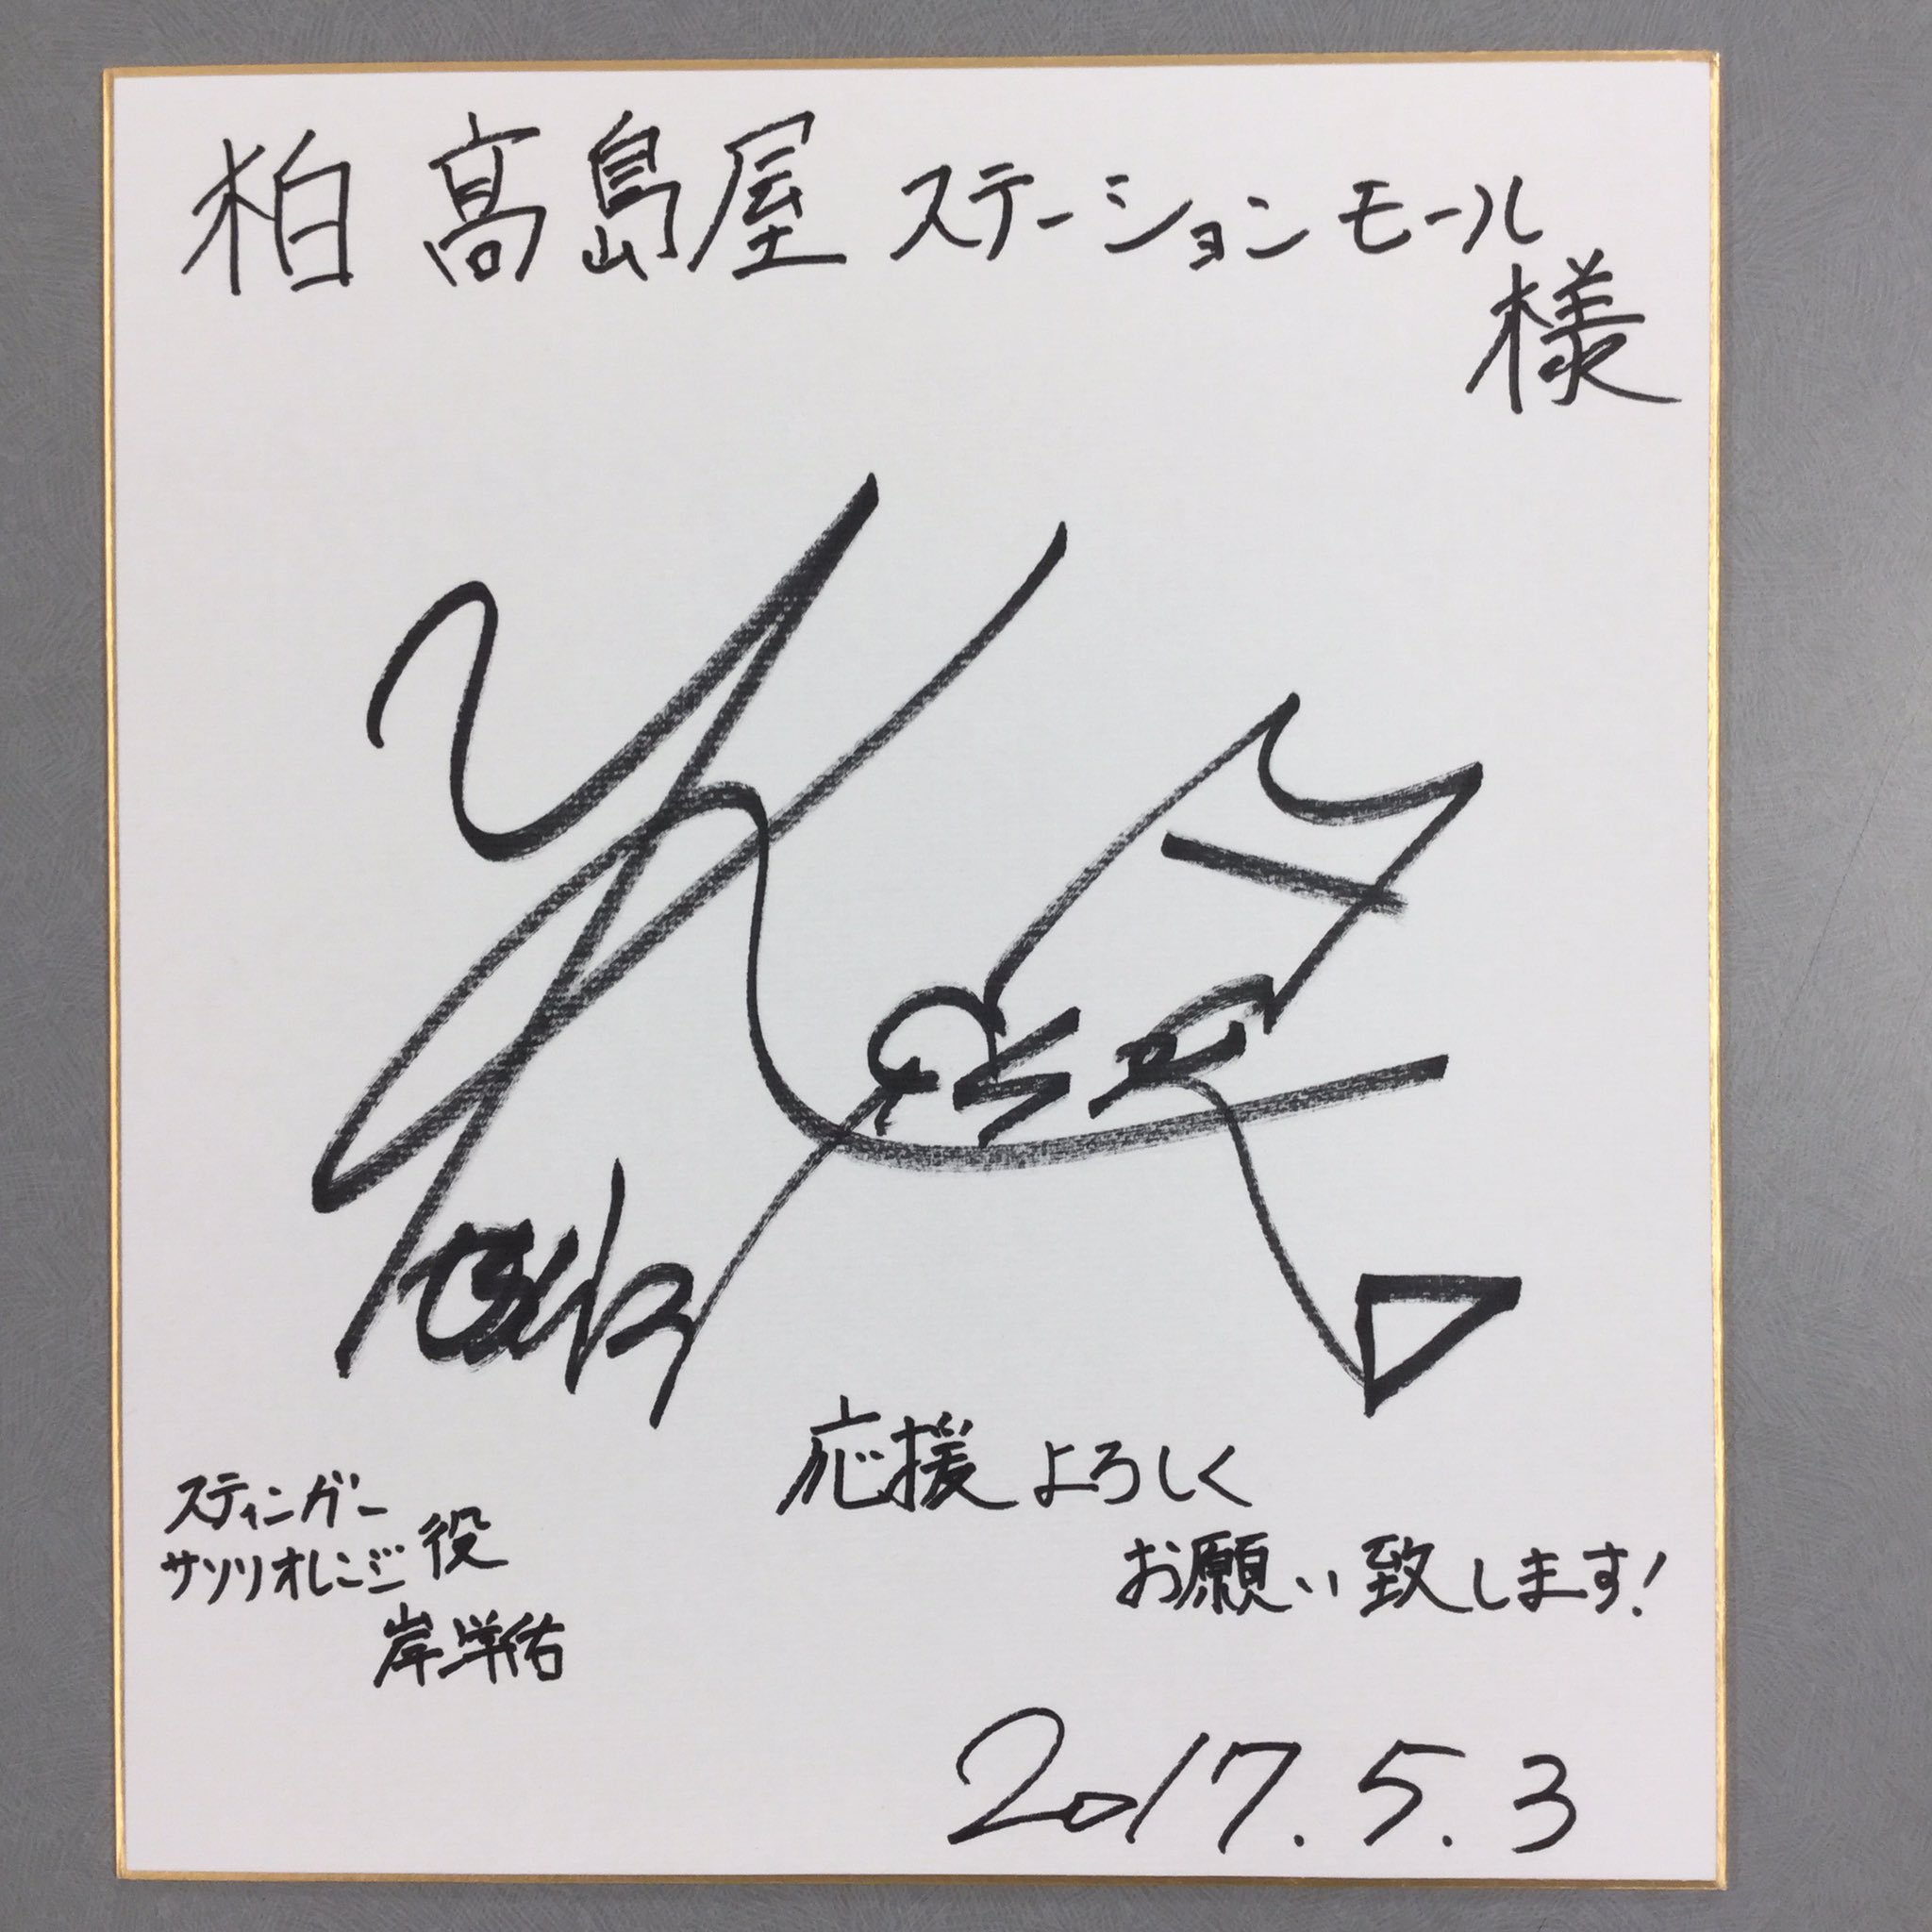 柏 高島屋 ステーションモール
様
応援 よろしく
お願い致します!
スティンガー
サソリオレンジ 役
岸洋佑
2017.5.3